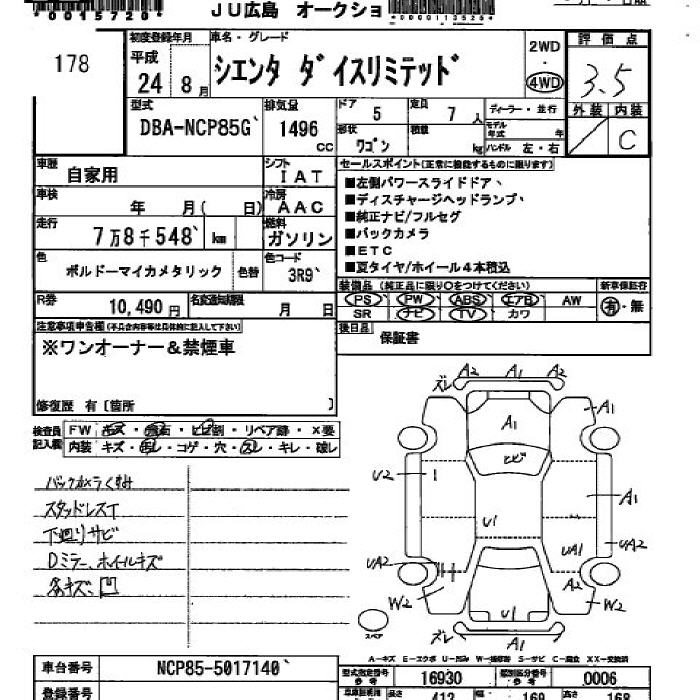 *00015720*
JU広島 オークショ
*00001135264*
178
初度登録年月
平成
24
8月
車名・グレード
シエンタ ダイスリミテッド
2WD
・
4WD
評価点
3.5
外装
内装
C
型式
DBA-NCP85G
排気量
1496
cc
ドア
5
定員
7
人
形状
ワゴン
積載
kg
ディーラー・並行
モデル年式
年
ハンドル 左・右
車歴
自家用
シフト
IAT
車検
年 月( 日)
冷房
AAC
走行
7万8千548
km
燃料
ガソリン
色
ボルドーマイカメタリック
色替
色コード
3R9
R券
10,490円
名変通知期限
月 日
セールスポイント(正常に機能するものに限ります)
■左側パワースライドドア
■ディスチャージヘッドランプ
■純正ナビ/フルセグ
■バックカメラ
■ETC
■夏タイヤ/ホイール4本積込
装備品(純正品に限り○をつけてください)
新車保証書
PS
PW
ABS
エアB
AW
SR
ナビ
TV
カワ
有・無
後日品
保証書
注意事項申告欄(不具合内容等は具体的に記入して下さい)
※ワンオーナー&禁煙車
修復歴 有〔箇所 〕
検査員記入欄
FW
キズ・飛石・ヒビ割・リペア跡・X要
内装
キズ・汚れ・コゲ・穴・スレ・キレ・破レ
バックカメラくすみ
スタッドレスT
下廻りサビ
Dミラー、ホイルキズ
各キズ、凹
ズレ
A2
A1
A2
A1
A1
ヒビ
U2
U1
A1
UA1
UA2
UA2
A2
W2
W2
U1
ズレ
A1
スペア
A-キズ E-エクボ U-凹み W-補修跡 S-サビ C-腐食 XX-交換済
車台番号
NCP85-5017140
登録番号
型式指定番号
参考
16930
類別区分番号
参考
0006
長さ
413
幅
169
高さ
168